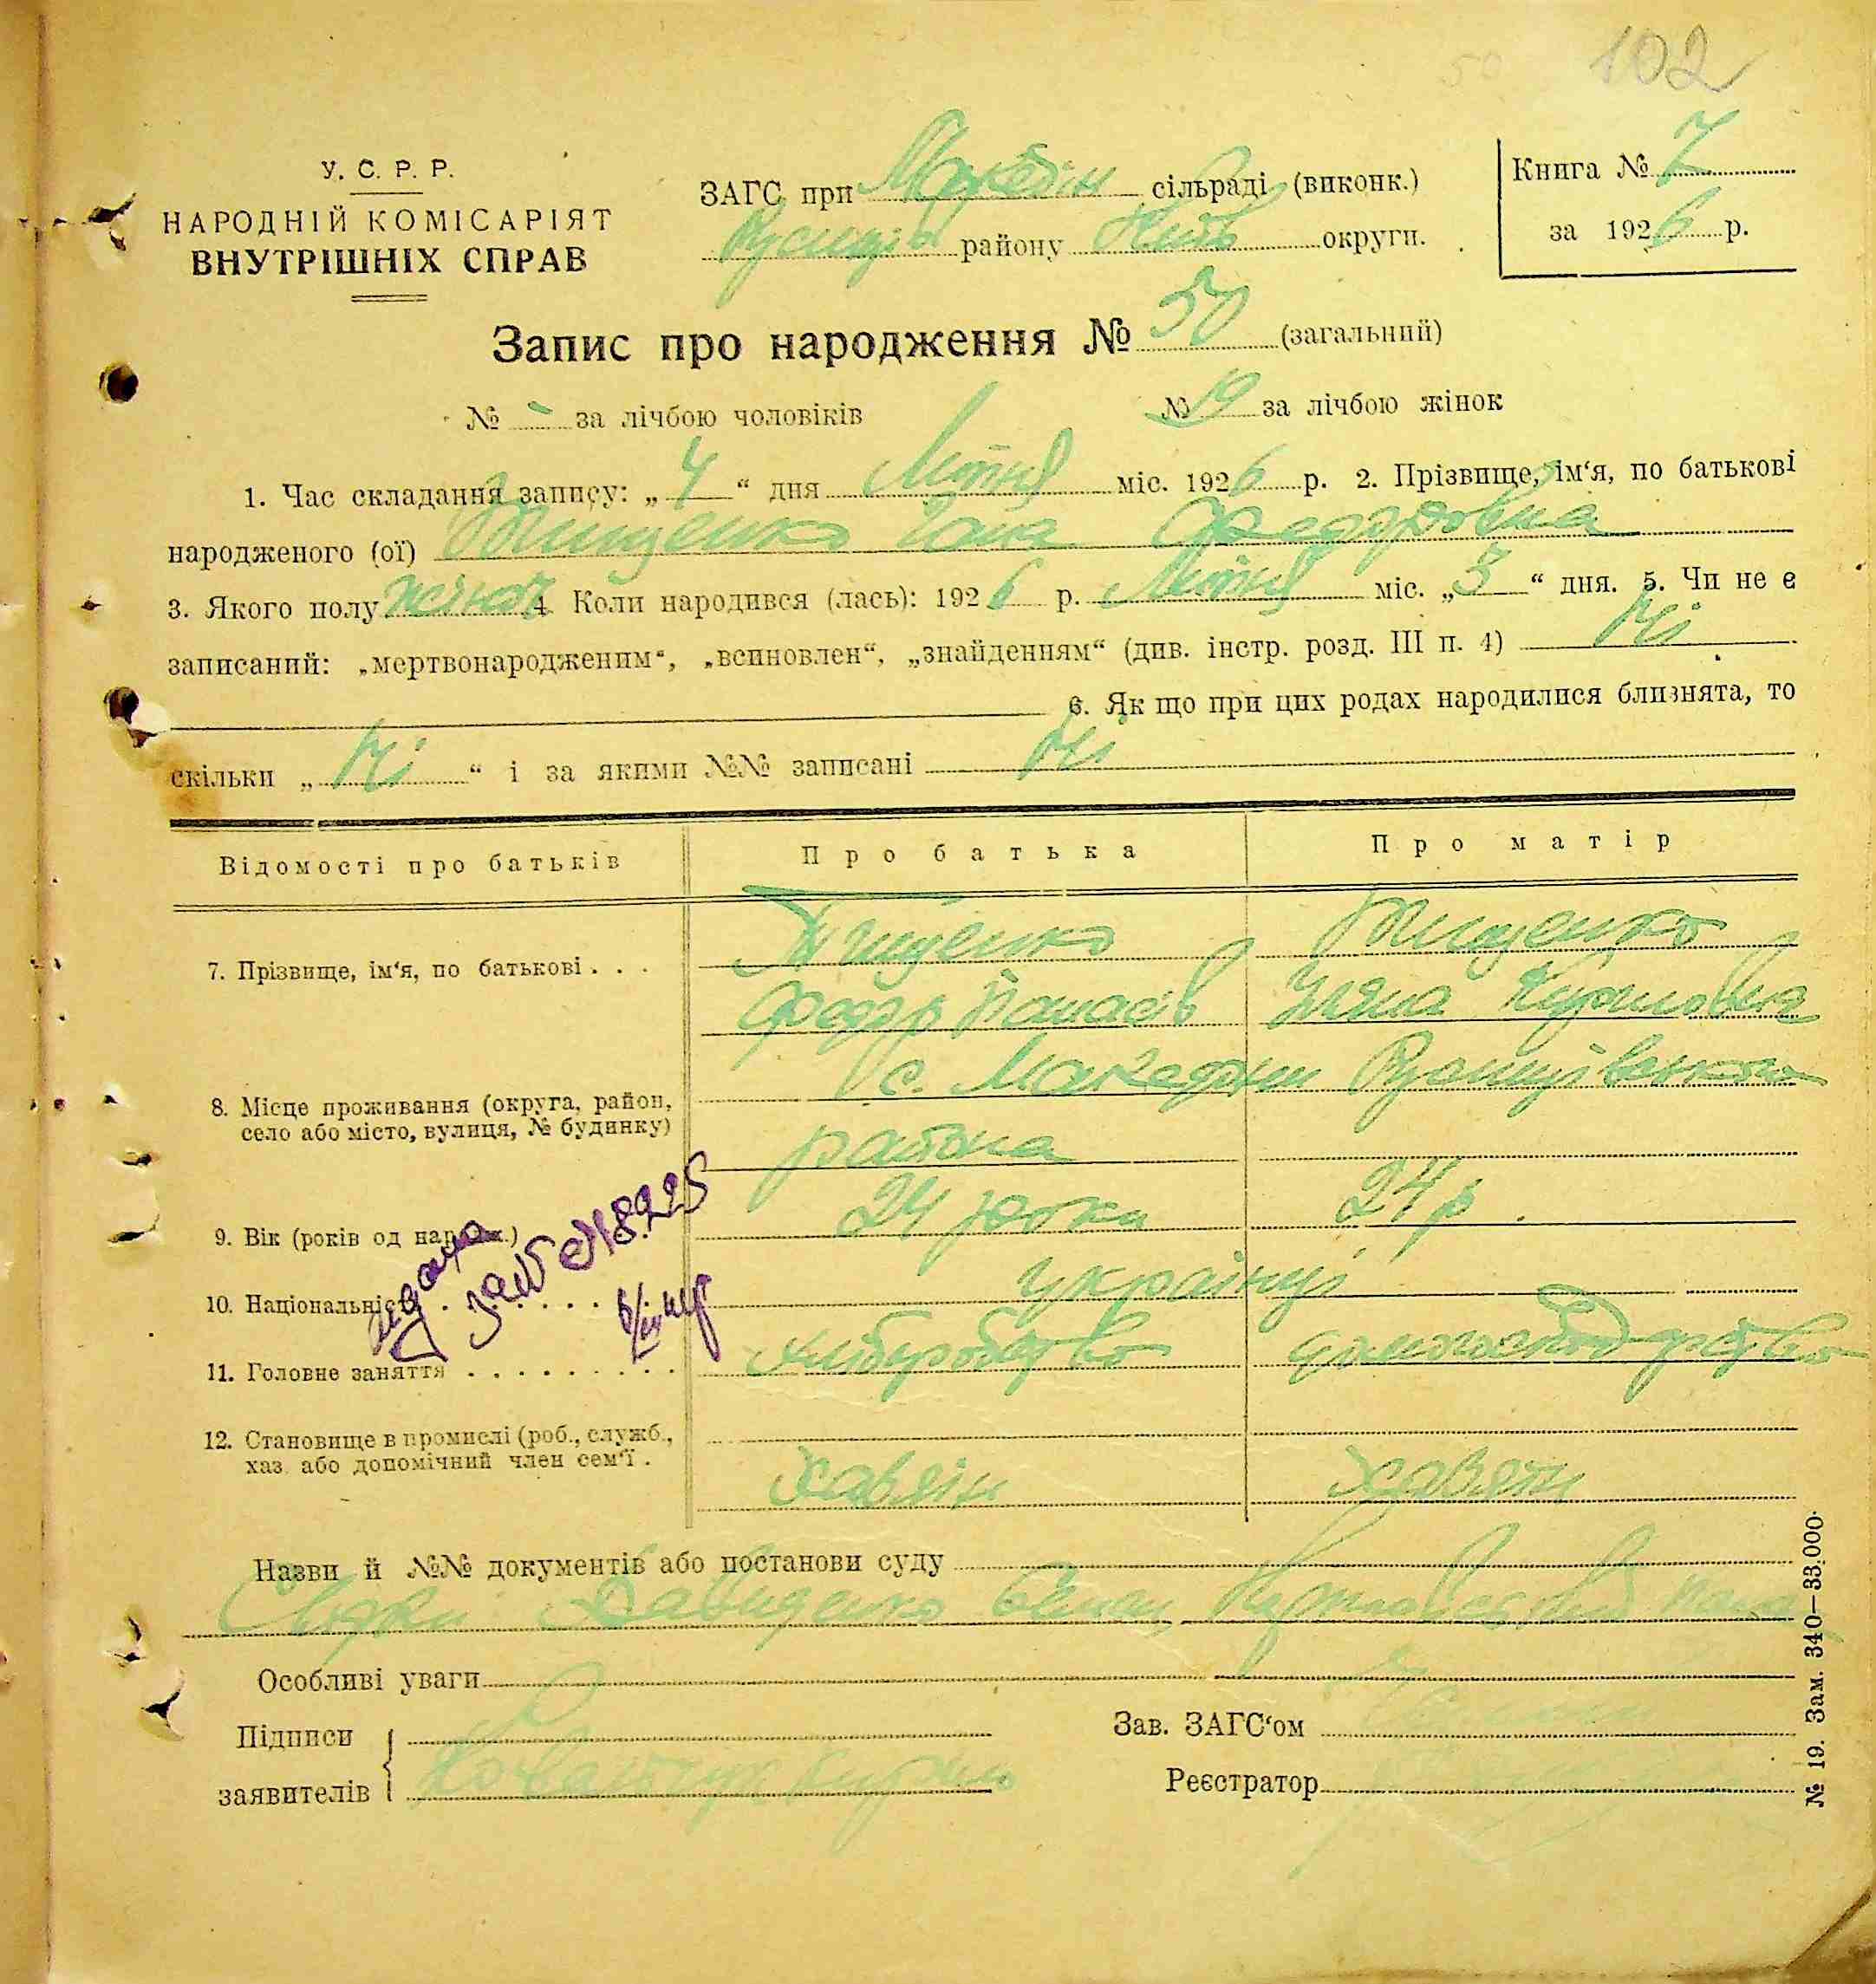 102
50
У. С. Р. Р.
НАРОДНІЙ КОМІСАРІЯТ
ВНУТРІШНІХ СПРАВ
ЗАГС при Македон сільраді (виконк.)
району Київ округи.
Книга № 7
за 1926 р.
Запис про народження № 50 (загальний)
№ - за лічбою чоловіків
№ 19 за лічбою жінок
1. Час складання запису: „4“ дня Лютий міс. 1926 р. 2. Прізвище, ім‘я, по батькові
народженого (ої) Тищенко Гана Федоровна
3. Якого полу жіноч 4. Коли народився (лась): 1926 р. Лютий міс. „3“ дня. 5. Чи не є
записаний: „мертвонародженим“, „всиновлен“, „знайденням“ (див. інстр. розд. III п. 4) Ні
6. Як що при цих родах народилися близнята, то
скільки „Ні“ і за якими №№ записані Ні
Відомості про батьків
Про батька
Про матір
7. Прізвище, ім‘я, по батькові . . .
Тищенко
Тищенко
Федор Панасів
Кириловна
8. Місце проживання (округа, район,
село або місто, вулиця, № будинку)
с. Македони
района
9. Вік (років од народж.)
24 роки
24 р.
10. Національність . . . . . .
українці
11. Головне заняття . . . . . . . . .
хлiборобство
12. Становище в промислі (роб., служб.,
хаз. або допомічний член сем‘ї .
хазяїн
хазяїн
№ 8225
Назви й №№ документів або постанови суду
Свідки Давиденко
Особливі уваги
Підписи
заявителів
Зав. ЗАГС‘ом
Реєстратор
№ 19. Зам. 340—33.000.